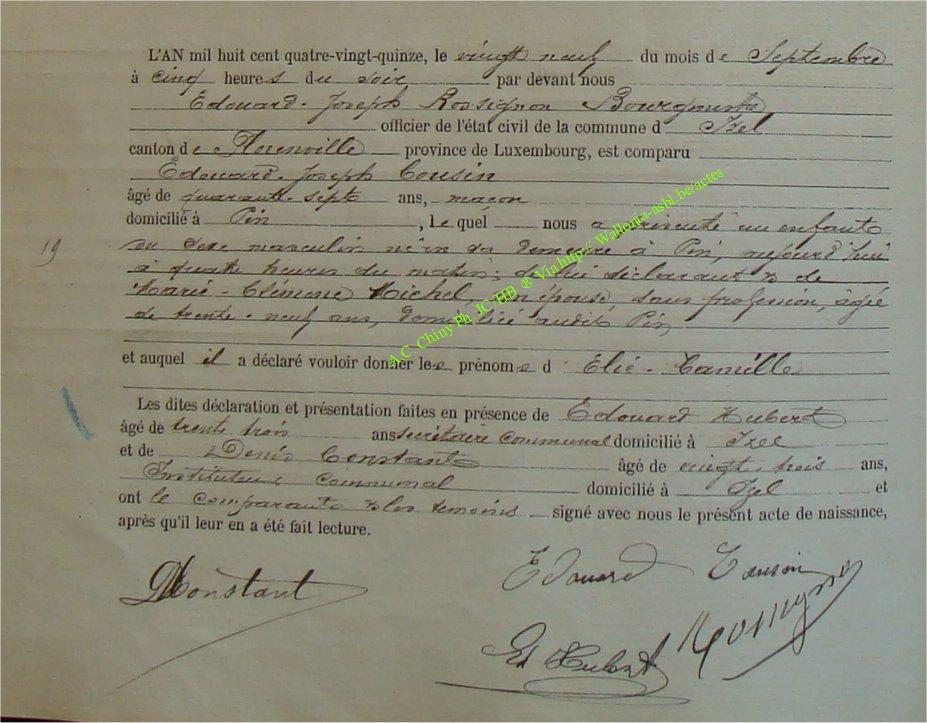 L'AN mil huit cent quatre-vingt-quinze, le vingt neuf du mois de Septembre
à cinq heures du soir par devant nous
Edouard-Joseph Rossignon Bourgmestre
officier de l'état civil de la commune d' Izel
canton de Florenville province de Luxembourg, est comparu
Edouard-Joseph Cousin
âgé de quarante-sept ans, maçon
domicilié à Pin, lequel nous a présenté un enfant
19
du sexe masculin né en sa demeure à Pin, aujourd'hui
à quatre heures du matin, de lui déclarant & de
Marie-Clémence Michel, son épouse, sans profession, âgée
de trente-neuf ans, domiciliée audit Pin
et auquel il a déclaré vouloir donner les prénoms d' Elie-Camille
Les dites déclaration et présentation faites en présence de Edouard Hubert
âgé de trente trois ans secrétaire communal domicilié à Izel
et de Denis Constant âgé de vingt-trois ans,
Instituteur communal domicilié à Izel et
ont le comparant & les témoins signé avec nous le présent acte de naissance,
après qu'il leur en a été fait lecture.
DConstant
Edouard Cousin
Ed Hubert
Rossignon
A.C. Chiny Ph JC-HB ® Via http// Wallonia-asbl.be/actes